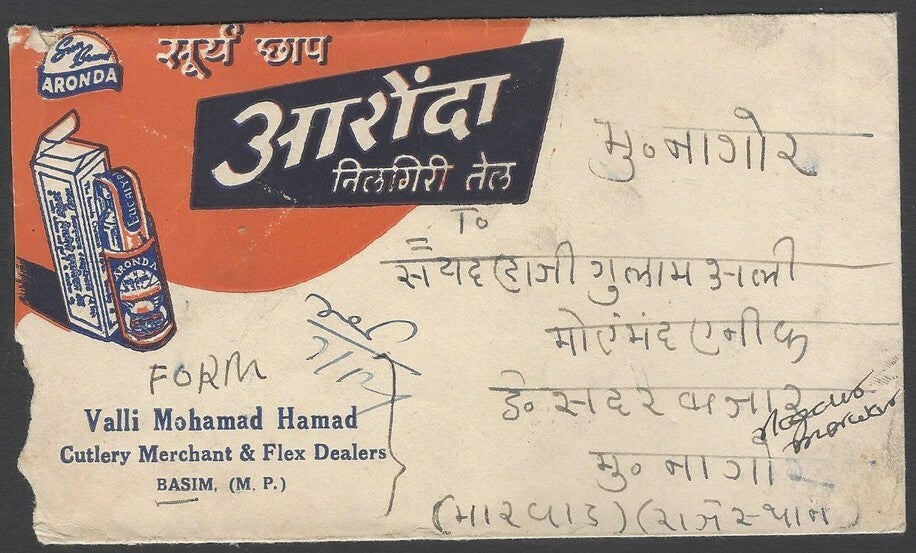 Sun Brand
ARONDA
सूर्य छाप
आरोंदा
निलगिरी तेल
ARONDA
मु॰ नागोर
To
सैयद हाजी गुलाम अली
मोएंमंद एनीक
ठे॰ सदर बाजार
मु॰ नागोर
(मारवाड) (राजस्थान)
FORM
Valli Mohamad Hamad
Cutlery Merchant & Flex Dealers
BASIM, (M. P.)